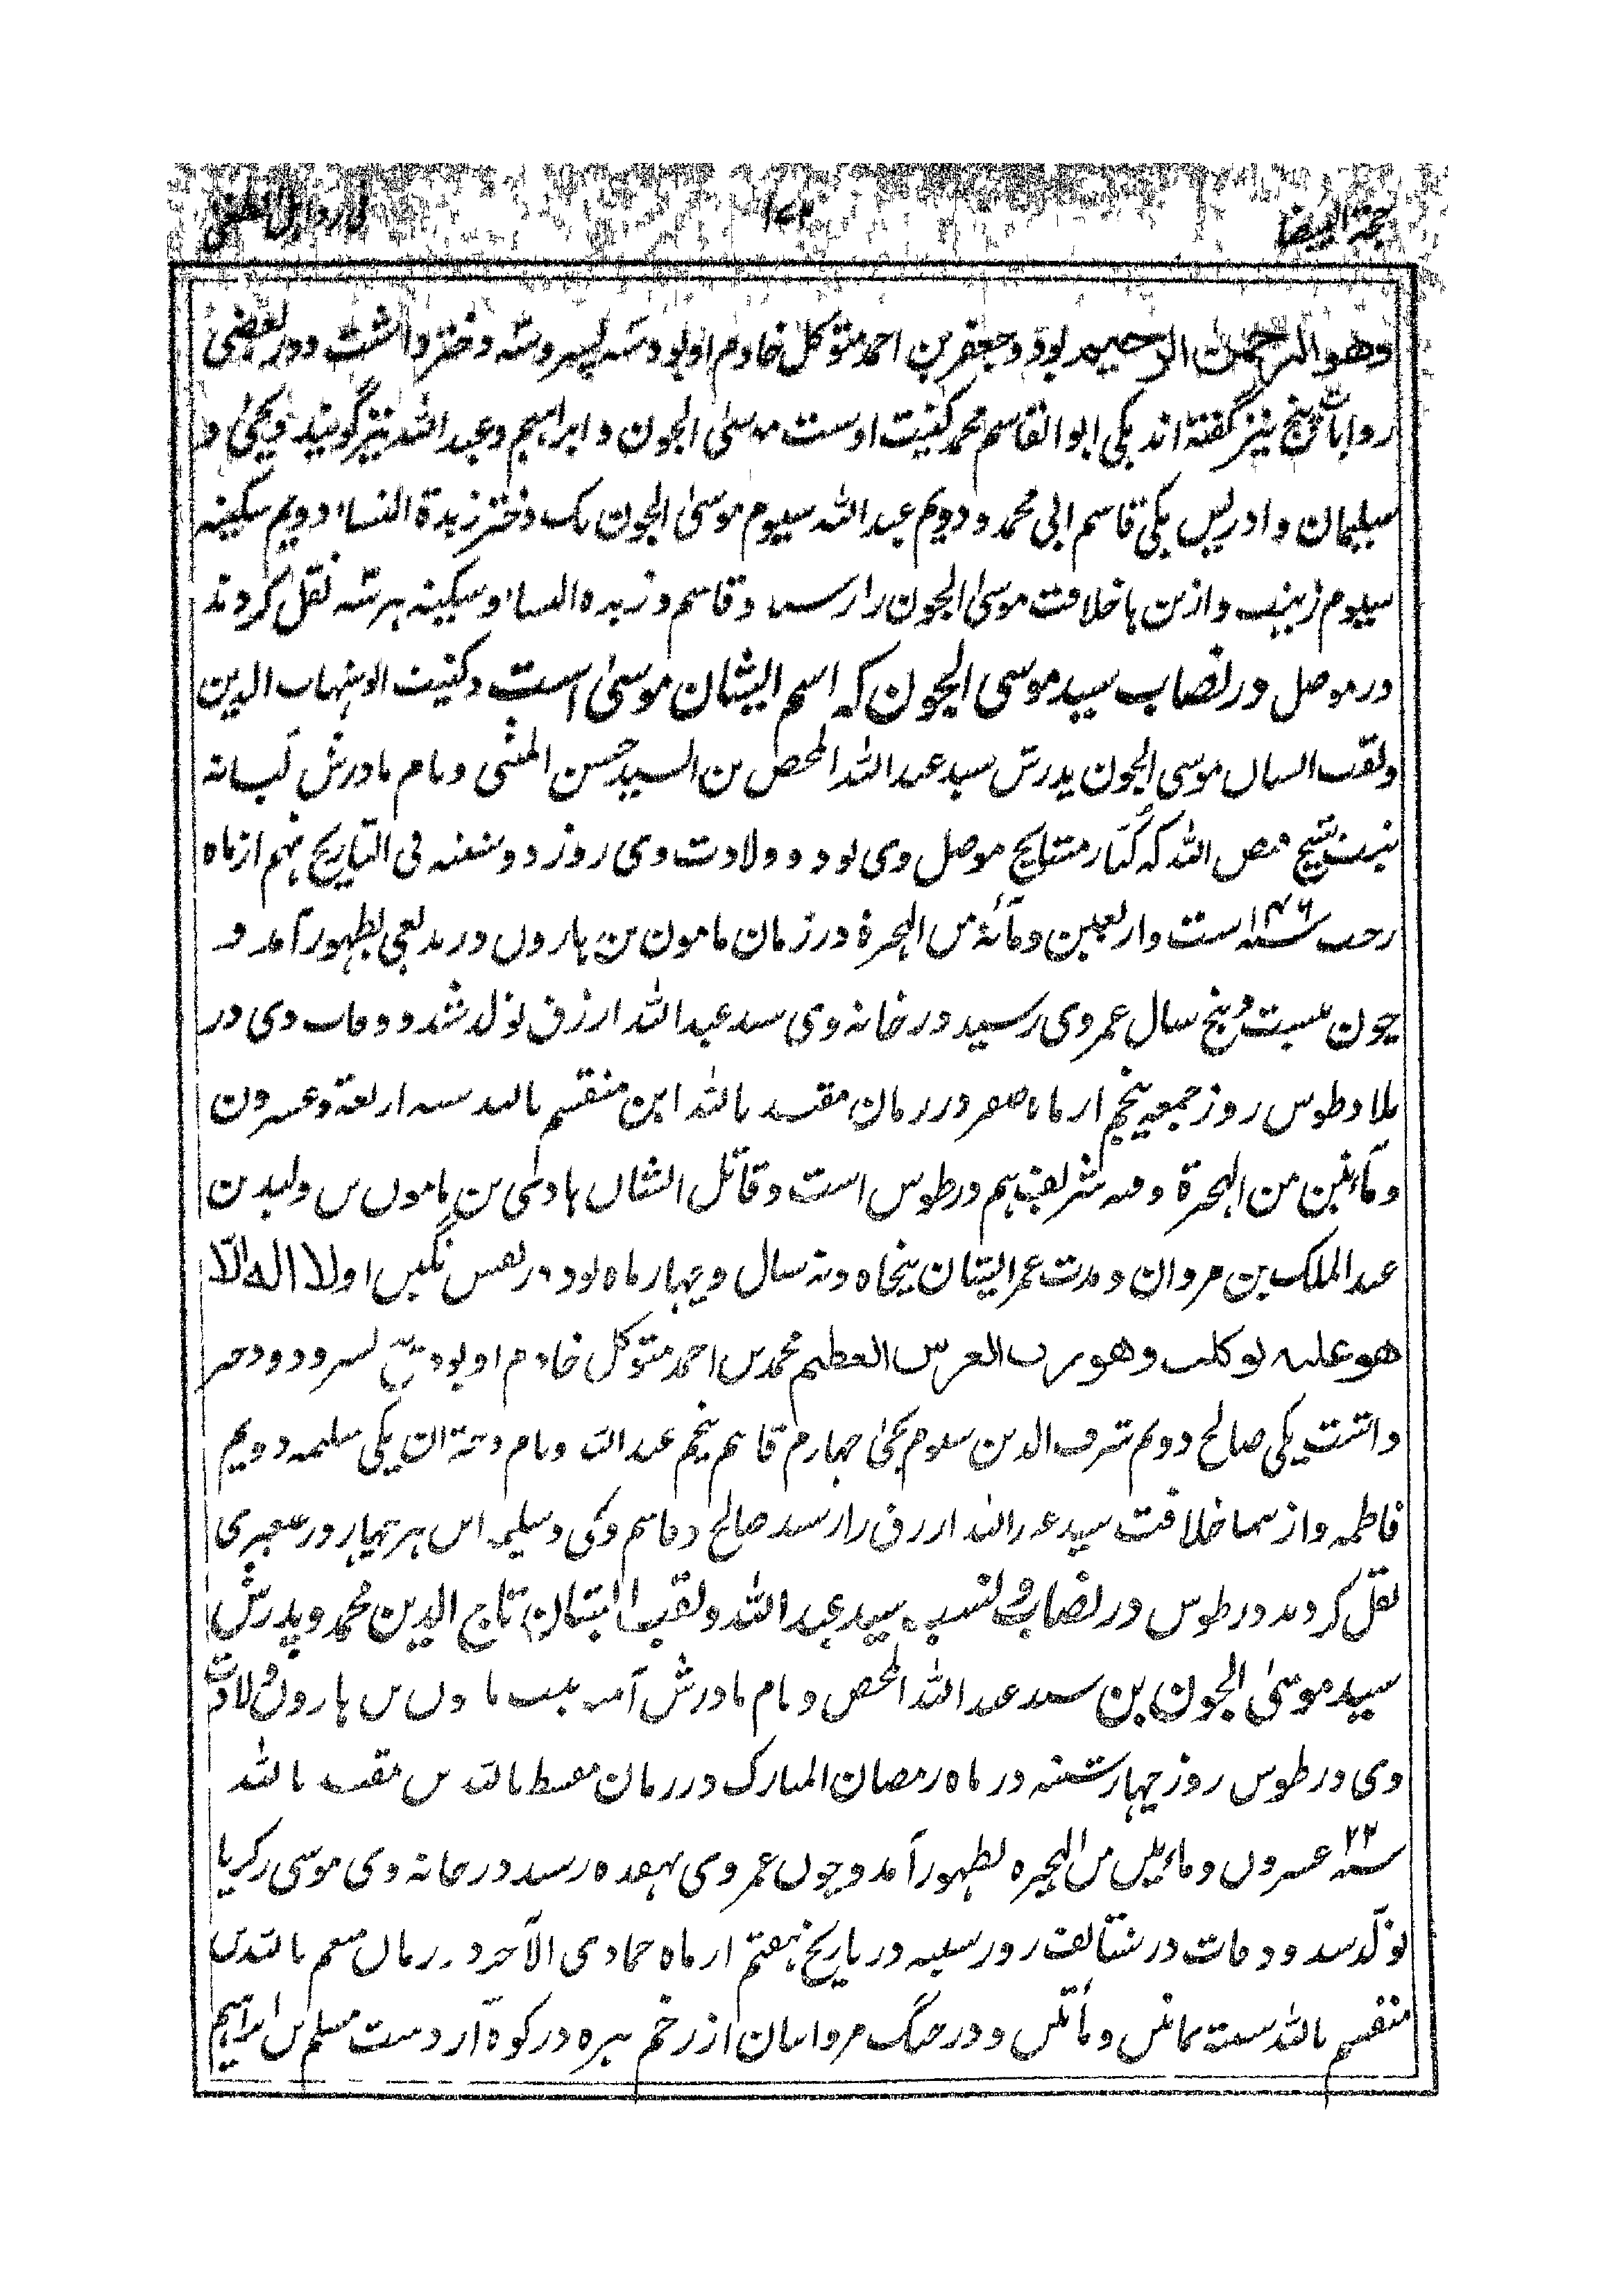 حجة البیضا
وهو الرحمن الرحیم بود و جعفر بن احمد متوکل خادم او بود سه پسر و سه دختر داشت و در بعضی
روایات پنج نیز گفته اند یکی ابو القاسم محمد کنیت اوست موسیٰ الجون و ابراہیم و عبد الله نیز گویند و یحییٰ و
سلیمان و ادریس یکی قاسم ابی محمد و دویم عبد الله سیوم موسیٰ الجون یک دختر زبدة النساء دویم سکینه
سیوم زینب و ازین ها خلافت موسیٰ الجون را رسید و قاسم و زبده النساء و سکینه هر سه نقل کردند
در موصل در نصاب سید موسی الجون که اسم ایشان موسیٰ است و کنیت او شهاب الدین
و لقب ایشان موسی الجون پدرش سید عبد الله المحض بن السید حسن المثنی و نام مادرش
بنت شیخ الله که کبار مشایخ موصل وی بود و ولادت وی روز دوشنبه فی التاریخ نهم از ماه
رجب سنه ۱۴۶ ست و اربعین و مائة من الهجرة در زمان مامون بن هارون در بظهور آمد و
چون بیست و پنج سال عمر وی رسید در خانه وی سید عبد الله ارزق تولد شد و وفات وی در
بلاد طوس روز جمعه پنجم از ماه صفر در زمان مقتد بالله ابن منقسم بالله سنه اربعة و عشرون
و مأتین من الهجرة و شریف هم در طوس است و قاتل ایشان هادی بن مامون بن ولید بن
عبد الملک بن مروان و مدت عمر ایشان پنجاه و نه سال و چهار ماه بود در نقس نگین او لا اله الّا
هو علیه توکلت و هو رب العرش العظیم محمد بن احمد متوکل خادم او بود پنج پسر و دو دختر
داشت یکی صالح دویم شرف الدین سیوم یحییٰ چهارم قاسم پنجم عبد الله و نام دختران یکی سلیمه دویم
فاطمه و از خلافت سید عبد الله ارزق را رسید صالح و قاسم و یحیی و سلیمه این هر چهار در صغیری
نقل کردند در طوس در نصاب و نسب سید عبد الله و لقب ایشان تاج الدین محمد و پدرش
سید موسیٰ الجون بن سید عبد الله المحض و نام مادرش آمنه بنت مامون بن هارون ولادت
وی در طوس روز چهارشنبه در ماه رمضان المبارک در زمان بالله بن مقتد بالله
سنه ۲۲ عشرون و مأتین من الهجره بظهور آمد و چون عمر وی بهفده رسید در خانه وی موسی زکریا
تولد شد و وفات در روز شنبه در تاریخ هفتم از ماه جمادی الآخر در زمان بالله بن
منقسم بالله سنه و مأتین و در جنگ مروانیان از زخم در کوه از دست مسلم بن ابراهیم